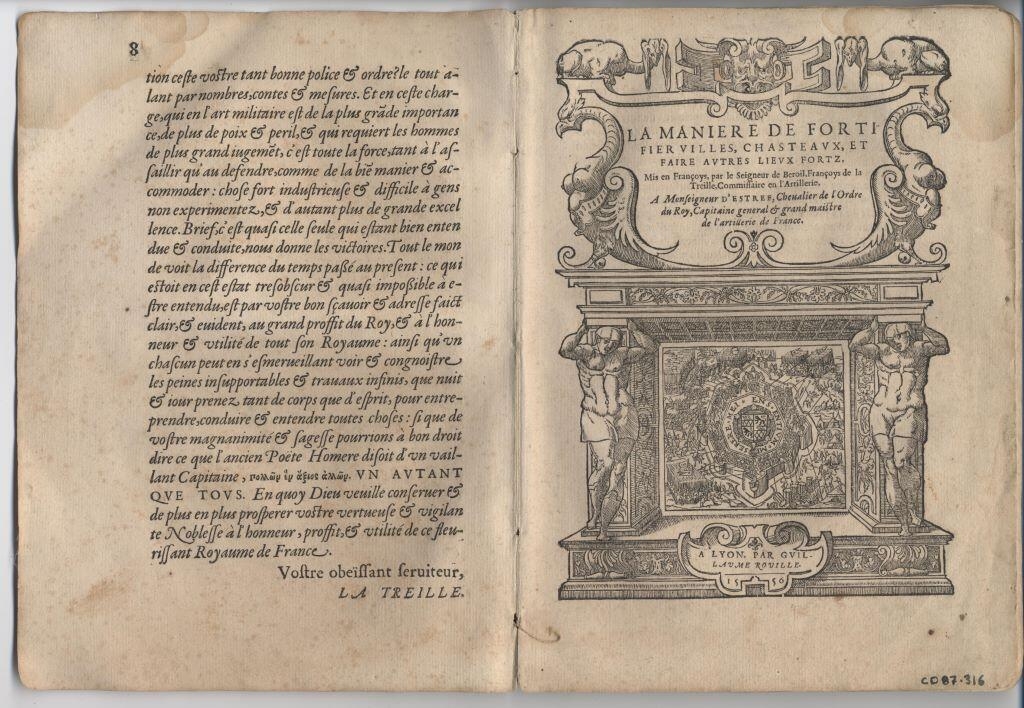 8
tion ceste vostre tant bonne police & ordre? le tout a-
lant par nombres, contes & mesures. Et en ceste char-
ge, qui en l'art militaire est de la plus grãde importan
ce, de plus de poix & peril, & qui requiert les hommes
de plus grand iugemẽt, c'est toute la force, tant à l'as-
saillir qu'au defendre, comme de la biẽ manier & ac-
commoder : chose fort industrieuse & difficile à gens
non experimentez, & d'autant plus de grande excel
lence. Brief, c'est quasi celle seule qui estant bien enten
due & conduite, nous donne les victoires. Tout le mon
de voit la difference du temps passé au present : ce qui
estoit en cest estat tresobscur & quasi impossible à e-
stre entendu, est par vostre bon sçauoir & adresse faict
clair, & euident, au grand proffit du Roy, & à l'hon-
neur & vtilité de tout son Royaume : ainsi qu'vn
chascun peut en s'esmerueillant voir & congnoistre
les peines insupportables & trauaux infinis, que nuit
& iour prenez tant de corps que d'esprit, pour entre-
prendre, conduire & entendre toutes choses : si que de
vostre magnanimité & sagesse pourrions à bon droit
dire ce que l'ancien Poëte Homere disoit d'vn vail-
lant Capitaine, VN AVTANT
QVE TOVS. En quoy Dieu veuille conseruer &
de plus en plus prosperer vostre vertueuse & vigilan
te Noblesse à l'honneur, proffit, & vtilité de ce fleu-
rissant Royaume de France.
Vostre obeïssant seruiteur,
LA TREILLE.
LA MANIERE DE FORTI
FIER VILLES, CHASTEAVX, ET
FAIRE AVTRES LIEVX FORTZ.
Mis en Françoys, par le Seigneur de Beroil, Françoys de la
Treille, Commissaire en l'Artillerie.
A Monseigneur D'ESTREE, Cheualier de l'Ordre
du Roy, Capitaine general & grand maistre
de l'artillerie de France.
A LYON. PAR GVIL-
LAVME ROVILLE.
1556
CD87.316